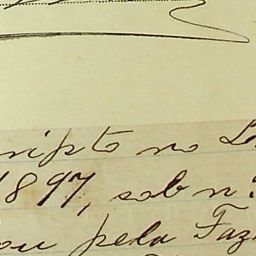 ripto no L
1897, sob n
ou pela Faz